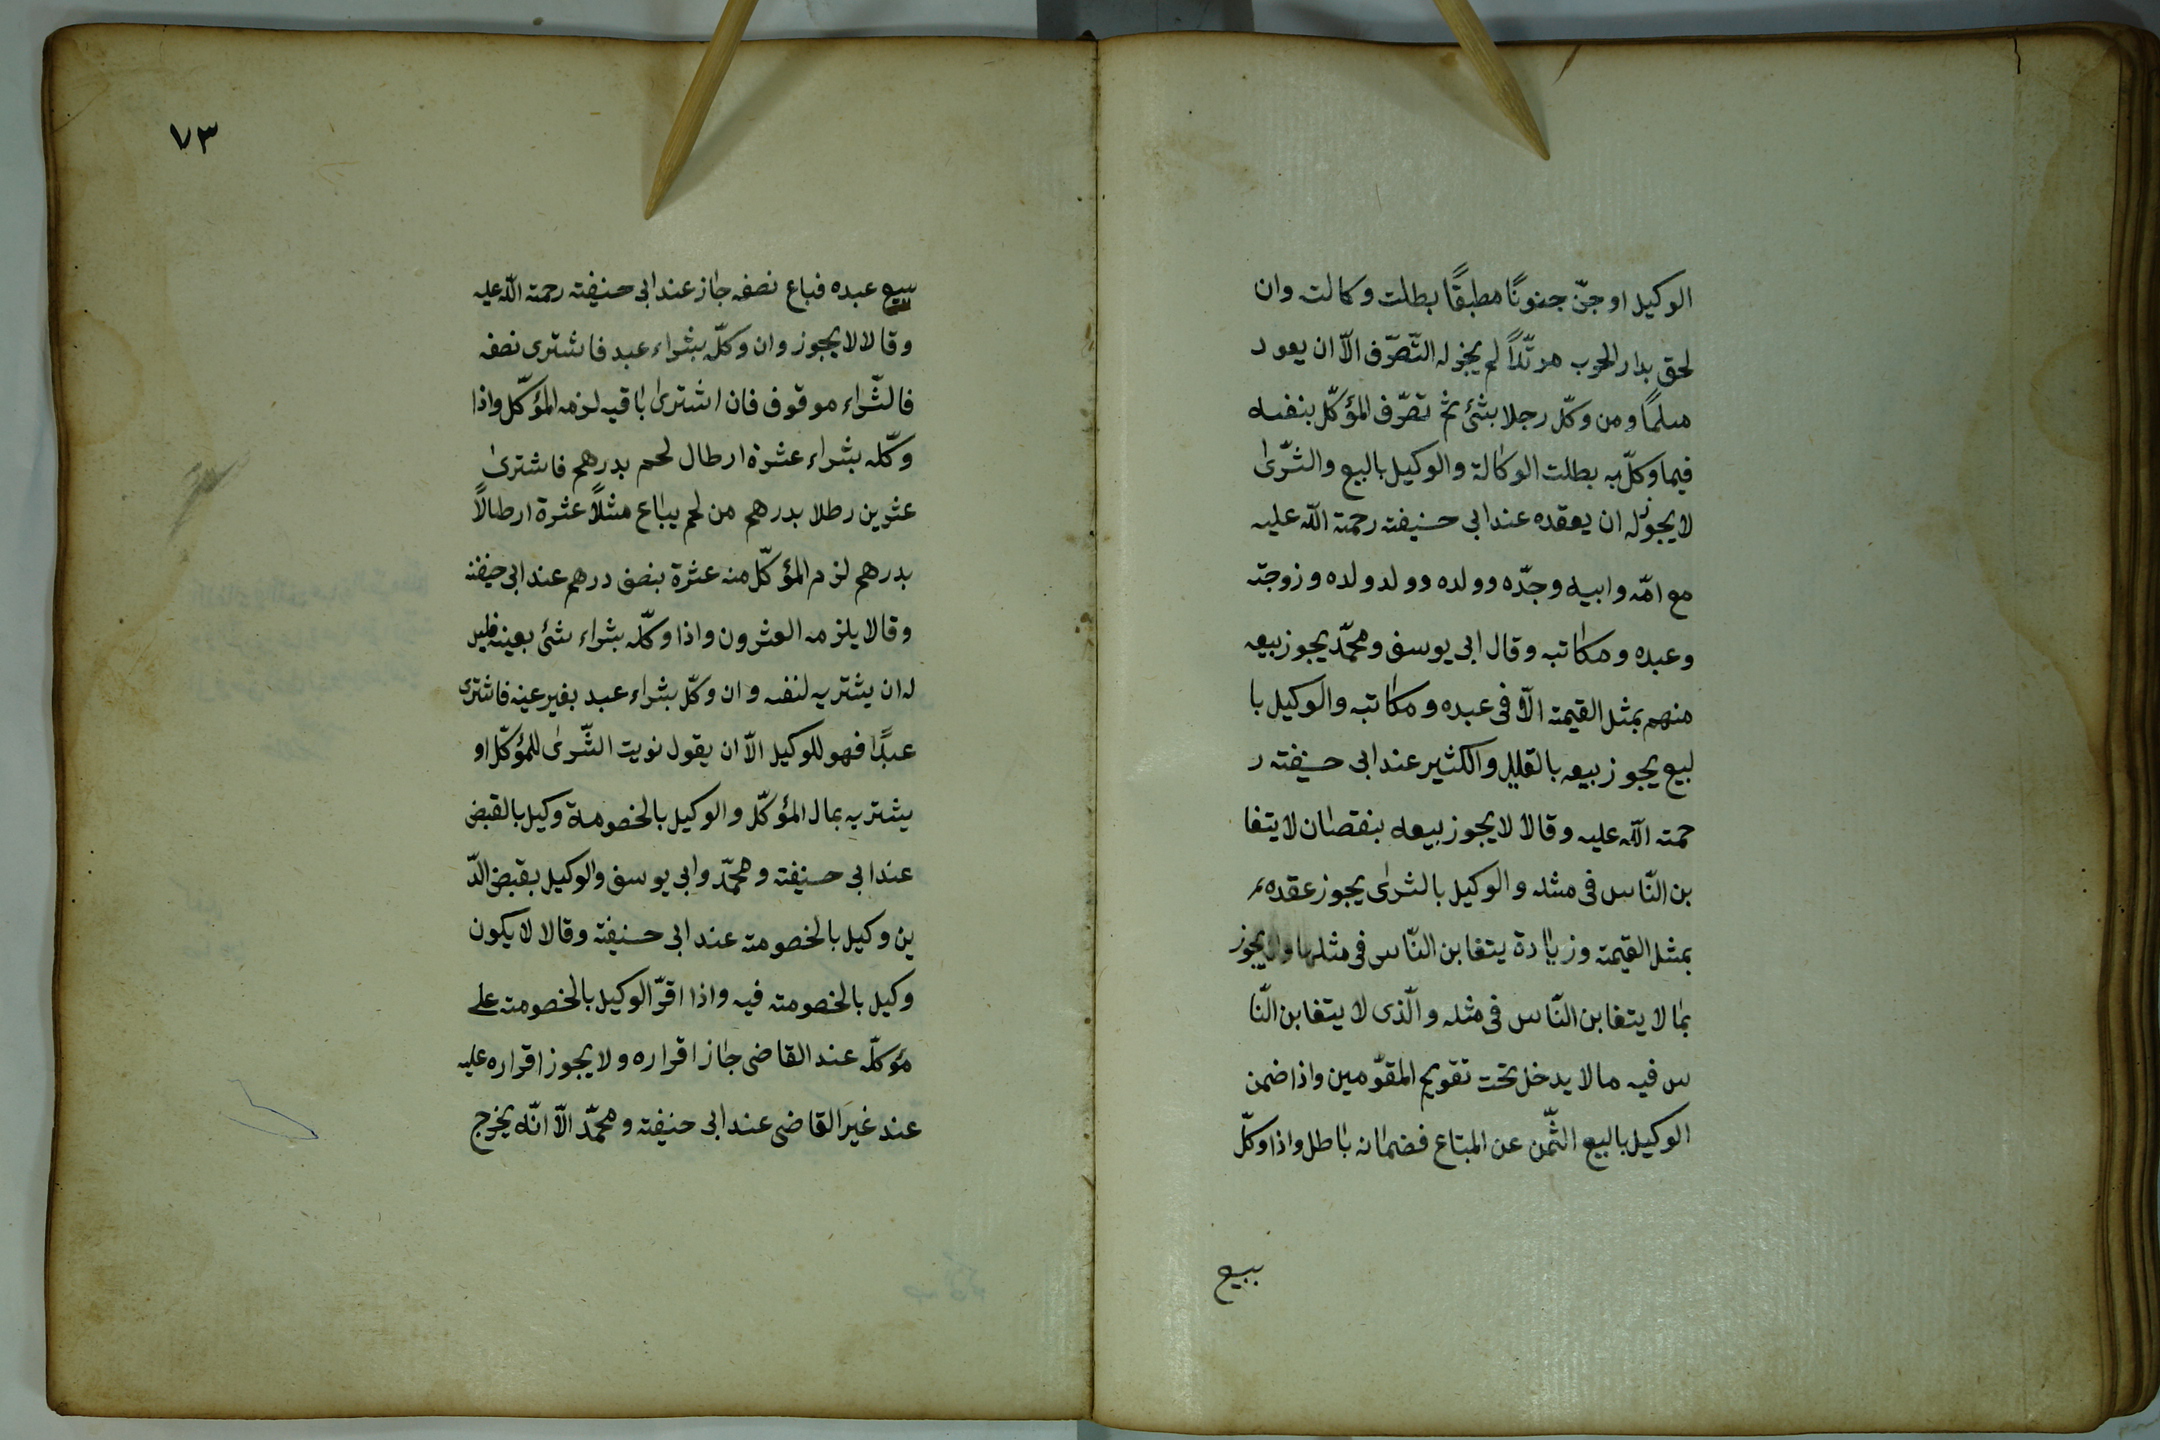 الوكيل او جنّ جنونًا مطبقًا بطلت وكالته وان
لحق بدار الحرب مرتّدًا لم يجز له التّصرّف الّا ان يعود
مسلمًا ومن وكّل رجلا بشئ ثم تصرّف المؤكّل بنفسه
فيما وكلّ به بطلت الوكالة والوكيل بالبيع والشّرىٰ
لا يجوز له ان يعقده عند ابى حنيفته رحمته اللّه عليه
مع امّه وابيه وجدّه وولده وولد ولده وزوجته
وعبده ومكاتبه وقال ابى يوسف ومحمّد يجوز بيعه
منهم بمثل القيمته الّا فى عبده ومكاتبه والوكيل با
لبيع يجوز بيعه بالقليل والكثير عند ابى حنيفته ر
حمته اللّه عليه وقالا لا يجوز بيعه بنقصان لا يتغا
بن النّاس فى مثله والوكيل بالشرىٰ يجوز عقده
بمثل القيمته وزيادة يتغابن النّاس فى مثلها ولا يجوز
بما لا يتغابن النّاس فى مثله والّذى لا يتغابن النّا
س فيه ما لا يدخل تحت تقويم المقوّمين واذا ضمن
الوكيل بالبيع الثّمن عن المبتاع فضمانه باطل واذا وكلّ
ببيع
٧٣
ببيع عبده فباع نصفه جاز عند ابى حنيفته رحمته اللّه عليه
وقالا لا يجوز وان وكلّه بشراء عبد فاشترى نصفه
فالشّراء موقوف فان اشترىٰ باقيه لزمه المؤكّل واذا
وكّله بشراء عشرة ارطال لحم بدرهم فاشترىٰ
عشرين رطلا بدرهم من لحم يباع مثلًا عشرة ارطالًا
بدرهم لزم المؤكّل منه عشرة بنصف درهم عند ابى حنيفته
وقالا يلزمه العشرون واذا وكّله بشراء شئ بعينه فليس
له ان يشتريه لنفسه وان وكّل بشراء عبد بغير عينه فاشترى
عبدًا فهو للوكيل الّا ان يقول نويت الشّرىٰ للمؤكّل او
يشتريه بمال المؤكّل والوكيل بالخصومة وكيل بالقبض
عند ابى حنيفته ومحمّد وابى يوسف والوكيل بقبض الدّ
ين وكيل بالخصومته عند ابى حنيفته وقالا لا يكون
وكيل بالخصومته فيه واذا اقرّ الوكيل بالخصومته على
مؤكلّه عند القاضى جاز اقراره ولا يجوز اقراره عليه
عند غير القاضى عند ابى حنيفته ومحمّد الّا انّه يخرج